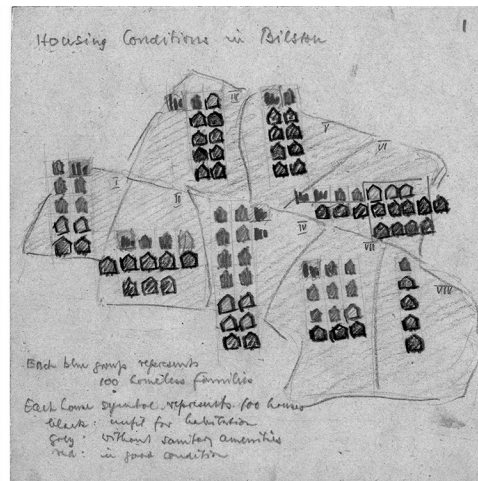 1
Housing Conditions in Bilston
III
V
VI
I
II
IV
VII
VIII
Each blue group represents
100 homeless families
Each house symbol represents 100 houses
black: unfit for habitation
grey: without sanitary amenities
red: in good condition